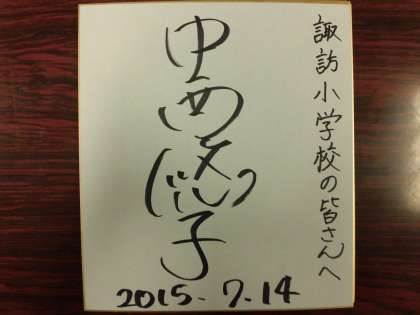 諏訪小学校の皆さんへ
中西悠子
2015.7.14